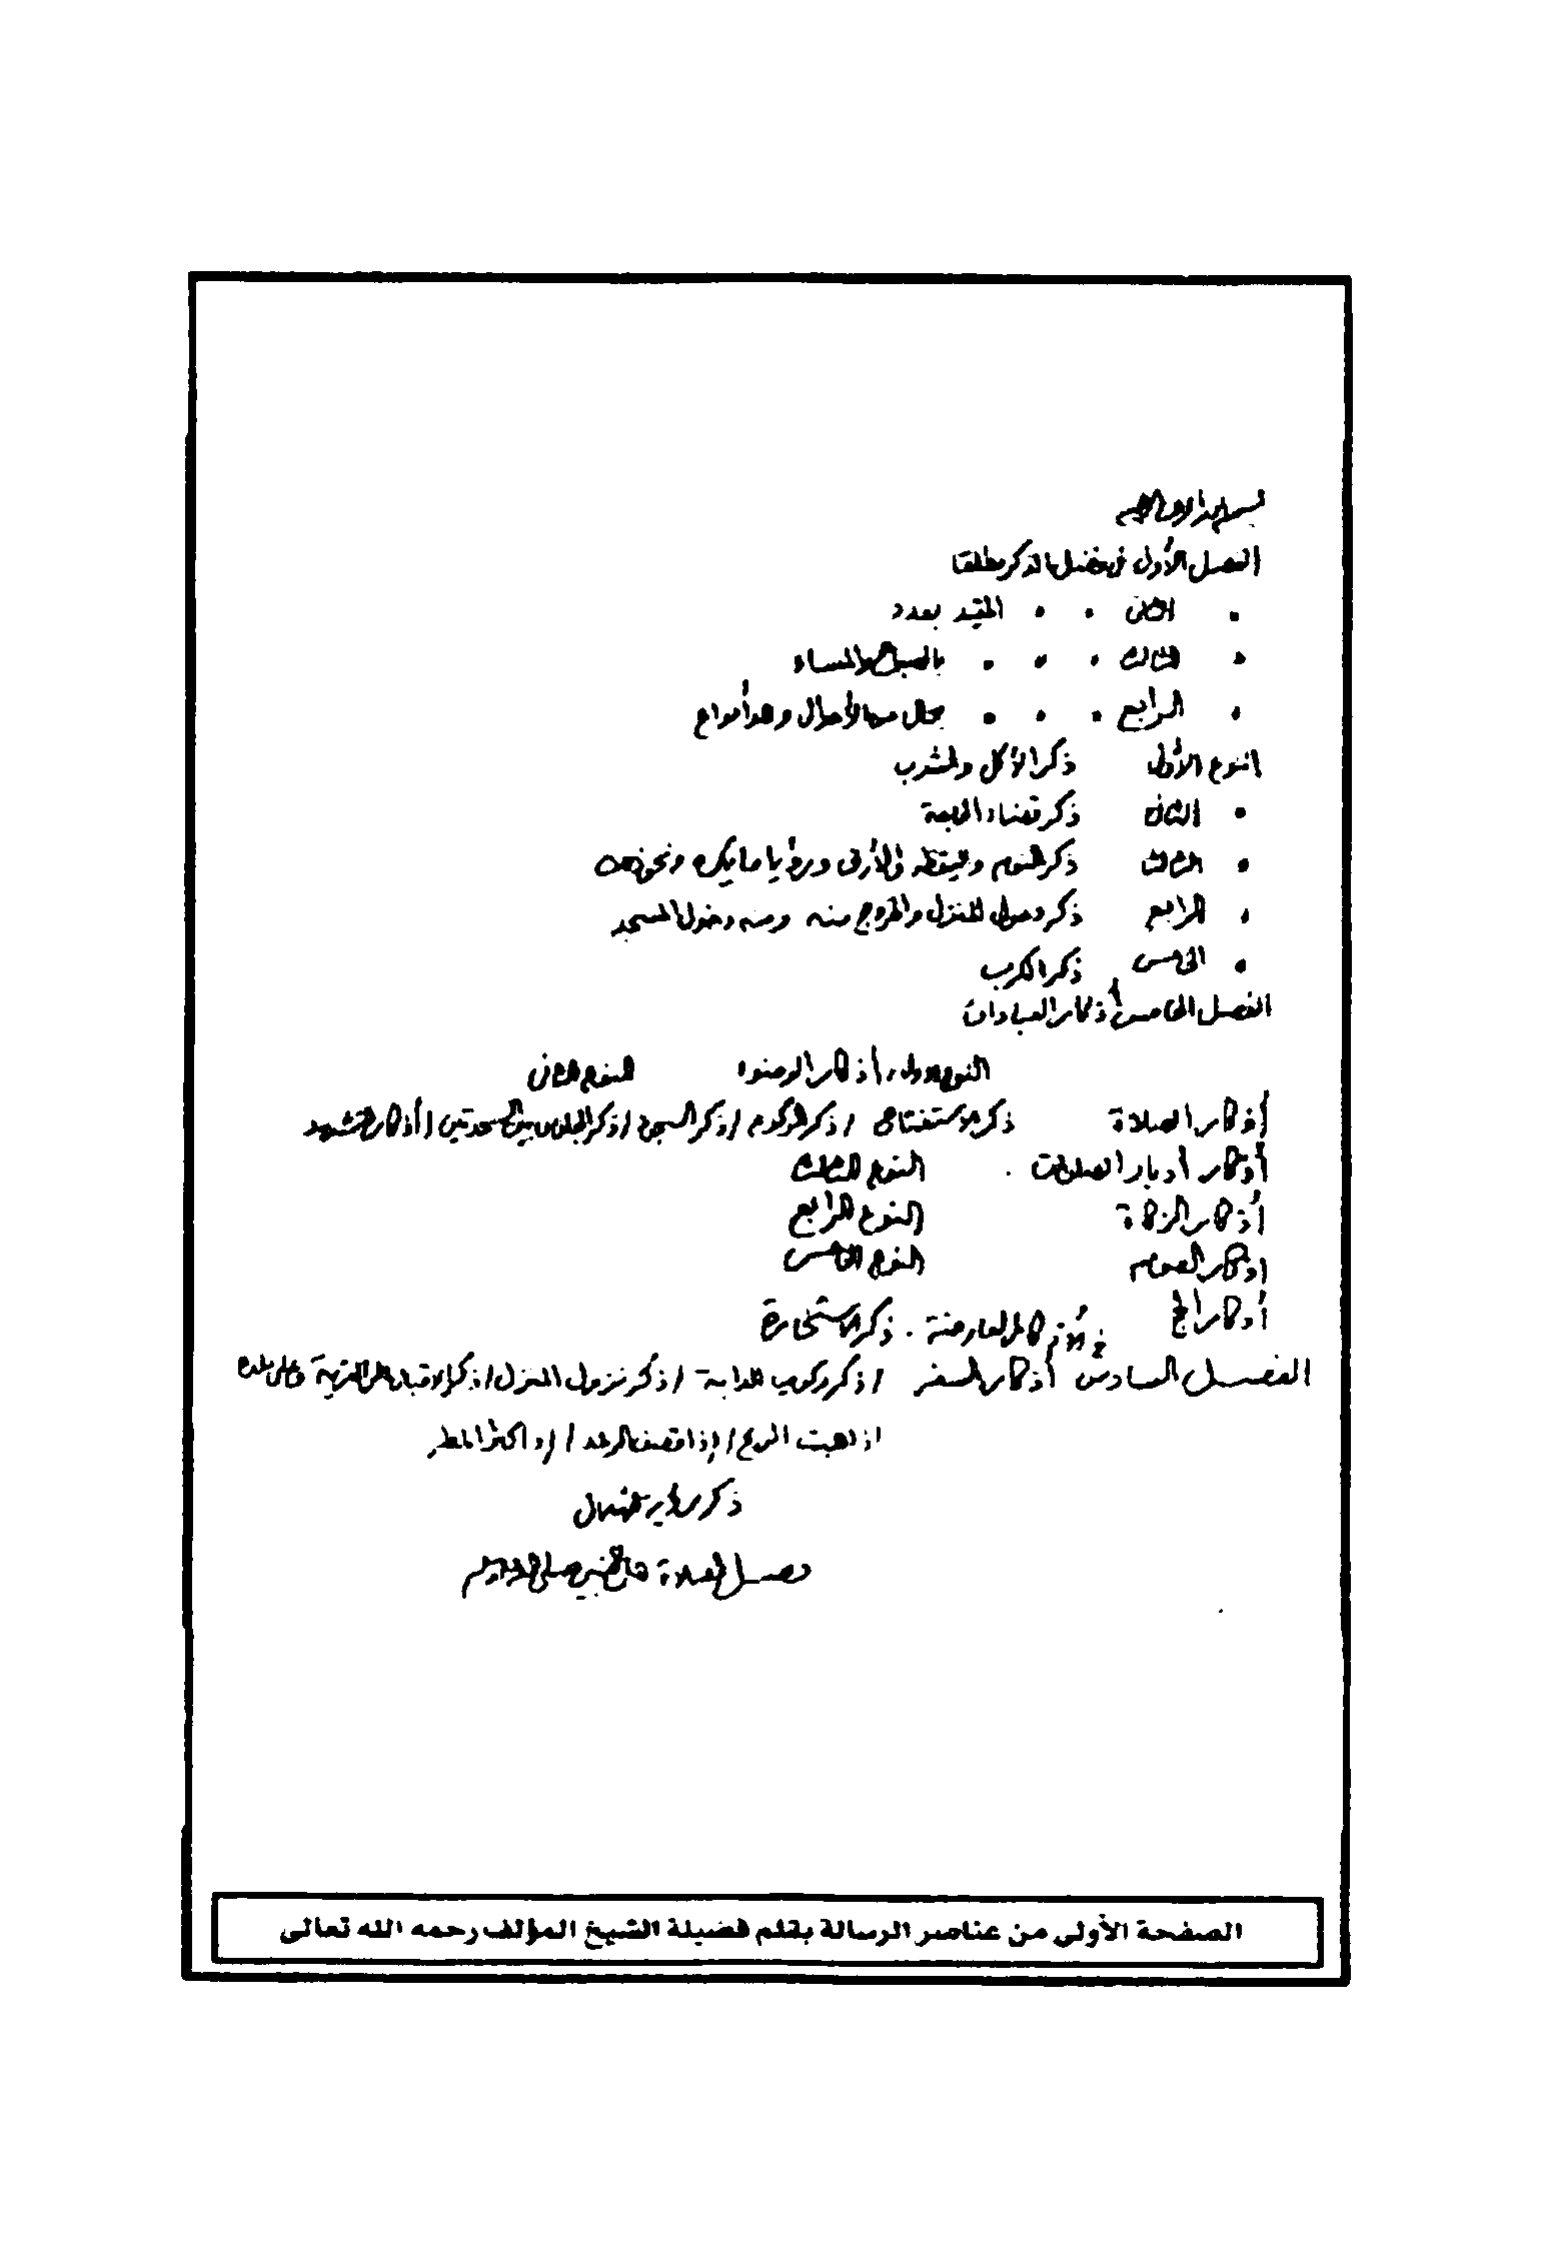 بسم الله الرحمن الرحيم
الفصل الأول في فضل الذكر مطلقا
• الثاني • • المقيد بعدد
• الثالث • • • بالصباح والمساء
• الرابع • • • بحال من الأحوال وهو أنواع
النوع الأول ذكر الأكل والشرب
• الثاني ذكر قضاء الحاجة
• الثالث ذكر النوم واليقظة والأرق ورؤيا ما يكره ونحو ذلك
• الرابع ذكر دخول المنزل والخروج منه ومنه دخول المسجد
• الخامس ذكر الكرب
الفصل الخامس أذكار العبادات
النوع الأول، أذكار الوضوء النوع الثاني
أذكار الصلاة ذكر الاستفتاح / ذكر الركوع / ذكر السجود / ذكر الجلوس بين السجدتين / أذكار التشهد
أذكار أدبار الصلوات . النوع الثالث
أذكار الزكاة النوع الرابع
اذكار الصوم النوع الخامس
أذكار الحج في الأذكار العارضة . ذكر الاستخارة
الفصل السادس أذكار السفر / ذكر ركوب الدابة / ذكر نزول المنزل / ذكر الإقبال على القرية وعلى بلده
اذا هبت الريح / إذا قصف الرعد / إذا كثر المطر
ذكر رؤية الهلال
فصل الصلاة على النبي صلى الله عليه وسلم
الصفحة الأولى من عناصر الرسالة بقلم فضيلة الشيخ المؤلف رحمه الله تعالى